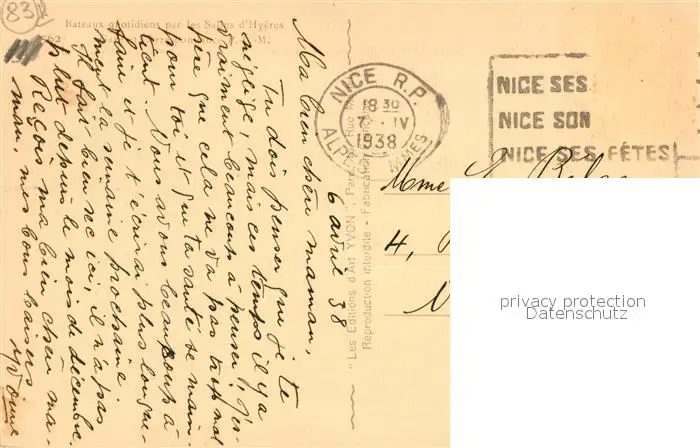 83
Bateaux quotidiens par les Salins d'Hyères
6 avril 38
Ma bien chère maman,
Tu dois penser que je te
néglige, mais ces temps il y a
vraiment beaucoup à penser ; j'es-
père que cela ne va pas trop mal
pour toi et que ta santé se main-
tient. Nous avons beaucoup à
faire et je t'écrirai plus longue-
ment la semaine prochaine.
Il fait bien sec ici, il n'a pas
plu depuis le mois de décembre.
Reçois ma bien chère ma-
man, mes bons baisers
Yvonne
"Les Editions d'Art YVON"
Reproduction interdite - Fabrication
NICE R.P.
18 30
7 · IV
1938
NICE SES
NICE SON
NICE SES FÊTES
Mme
4,
privacy protection
Datenschutz